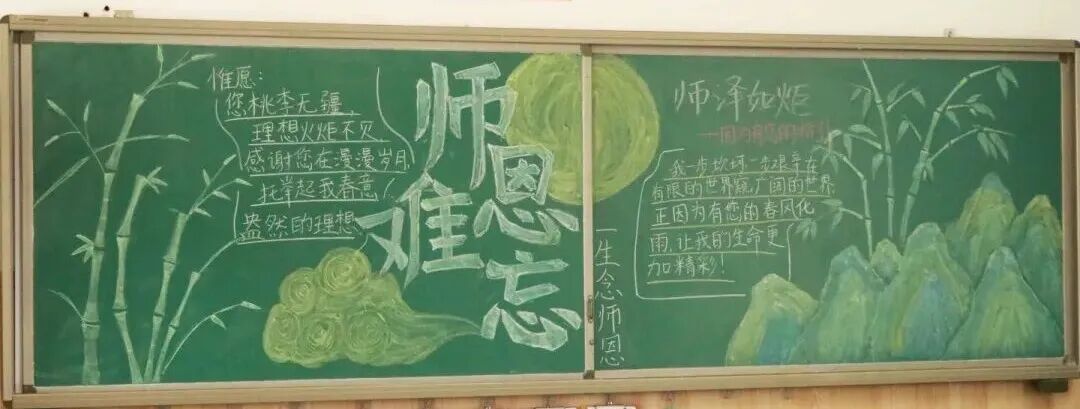 惟愿：
您桃李无疆，
理想火炬不灭，
感谢您在漫漫岁月
托举起我春意
盎然的理想
师恩
难忘
一生念师恩
师泽如炬
我一步坎坷一步艰辛在
有限的世界窥广阔的世界
正因为有您的春风化
雨，让我的生命更
加精彩！